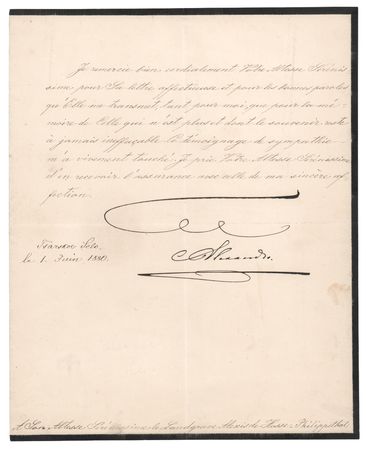 Je remercie bien cordialement Votre Altesse Sérénis
sime pour Sa lettre affectueuse et pour les bonnes paroles
qu'Elle me transmet, tant pour moi, que pour la mé-
moire de Celle qui n'est plus et dont le souvenir reste
à jamais ineffaçable. Ce témoignage de sympathie
m'a vivement touché. Je prie Votre Altesse Sérénissime
d'en recevoir l'assurance avec celle de ma sincère af-
fection.
Alexandre
Tsarskoe Selo,
le 1 Juin 1880.
A Son Altesse Sérénissime le Landgrave Alexis de Hesse-Philippsthal